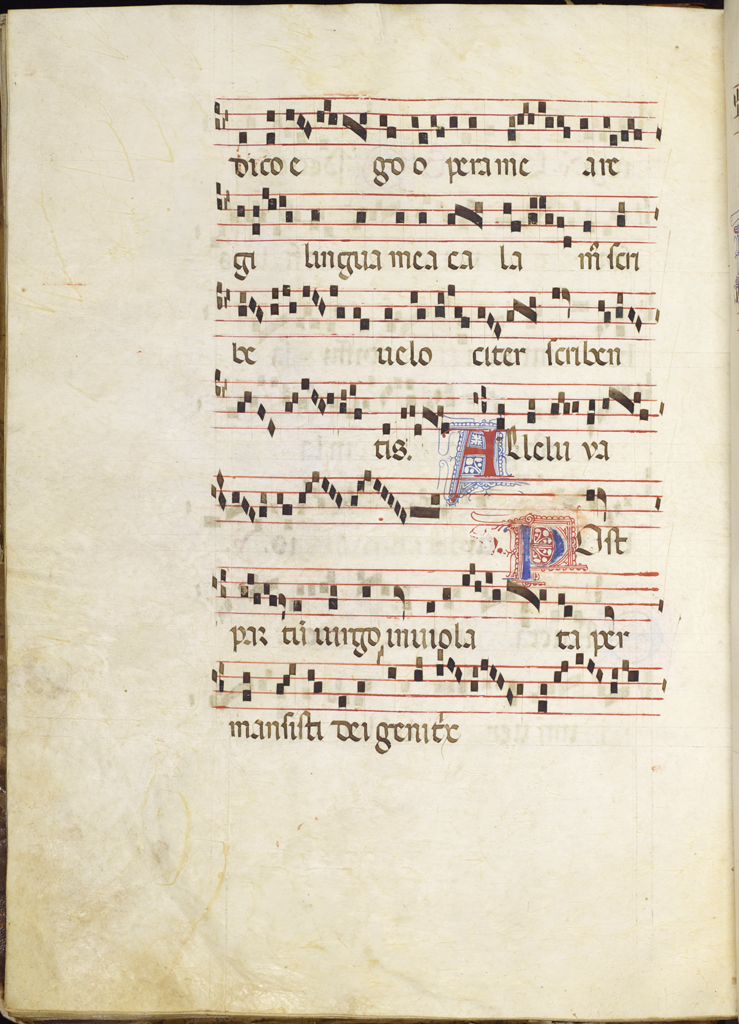 dico e go o pera me a re
gi lingua mea ca la m̄ scri
be uelo citer scriben
tis. Allelu ya
Post
par tū uirgo inuiola ta per
mansisti dei genitͥx